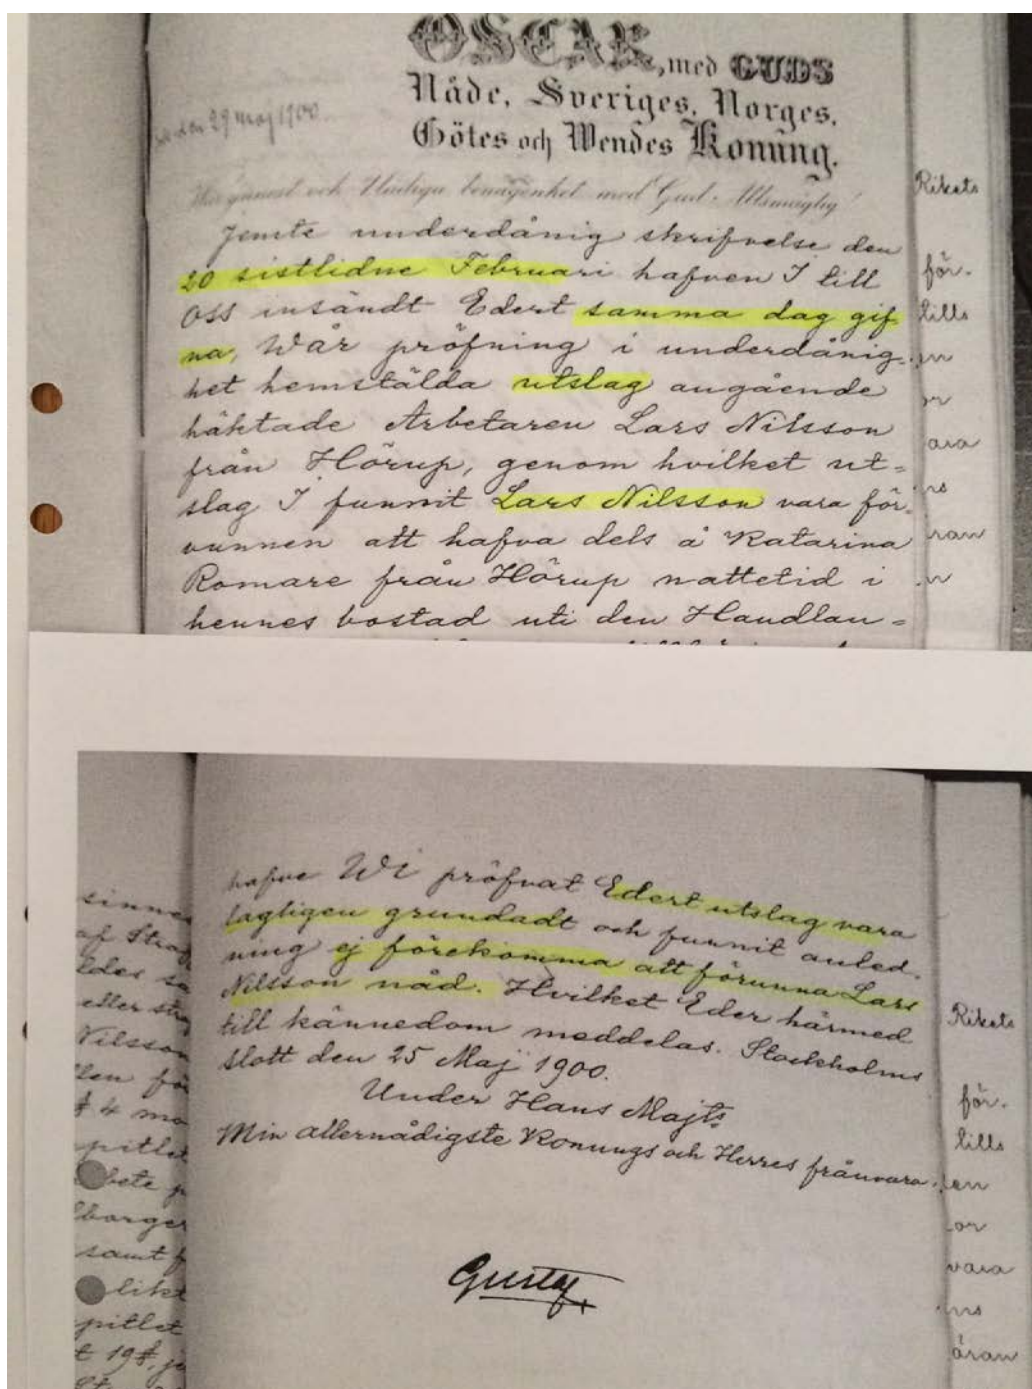 OSCAR, med GUDS
Nåde, Sveriges, Norges,
Götes och Wendes Konung.
den 29 maj 1900.
Wår ynnest och Nådiga benägenhet med Gud Allsmägtig!
Jemte underdånig skrifvelse den
20 sistlidne Februari hafven I till
Oss insändt Edert samma dag gif
na, Wår pröfning i underdånig-
het hemstälda utslag angående
häktade Arbetaren Lars Nilsson
från Hörup, genom hvilket ut-
slag I funnit Lars Nilsson vara för-
vunnen att hafva dels å Katarina
Romare från Hörup nattetid i
hennes bostad uti den Handlan-
Rikets
för-
tills
or
ara
ns
ran
hafve Wi pröfvat Edert utslag vara
lagligen grundadt och funnit anled.
ning ej förekomma att förunna Lars
Nilsson nåd. Hvilket Eder härmed
till kännedom meddelas. Stockholms
slott den 25 Maj 1900.
Under Hans Majts
Min allernådigste Konungs och Herres frånvaro.
Gustaf
sinnes
af Straf
ldes
eller
Nilsson
len för
4 mo
pitlet
bete
borger
samt f
likt
pitlet
t 19
Rikets
för.
tills
en
or
vara
ns
äran